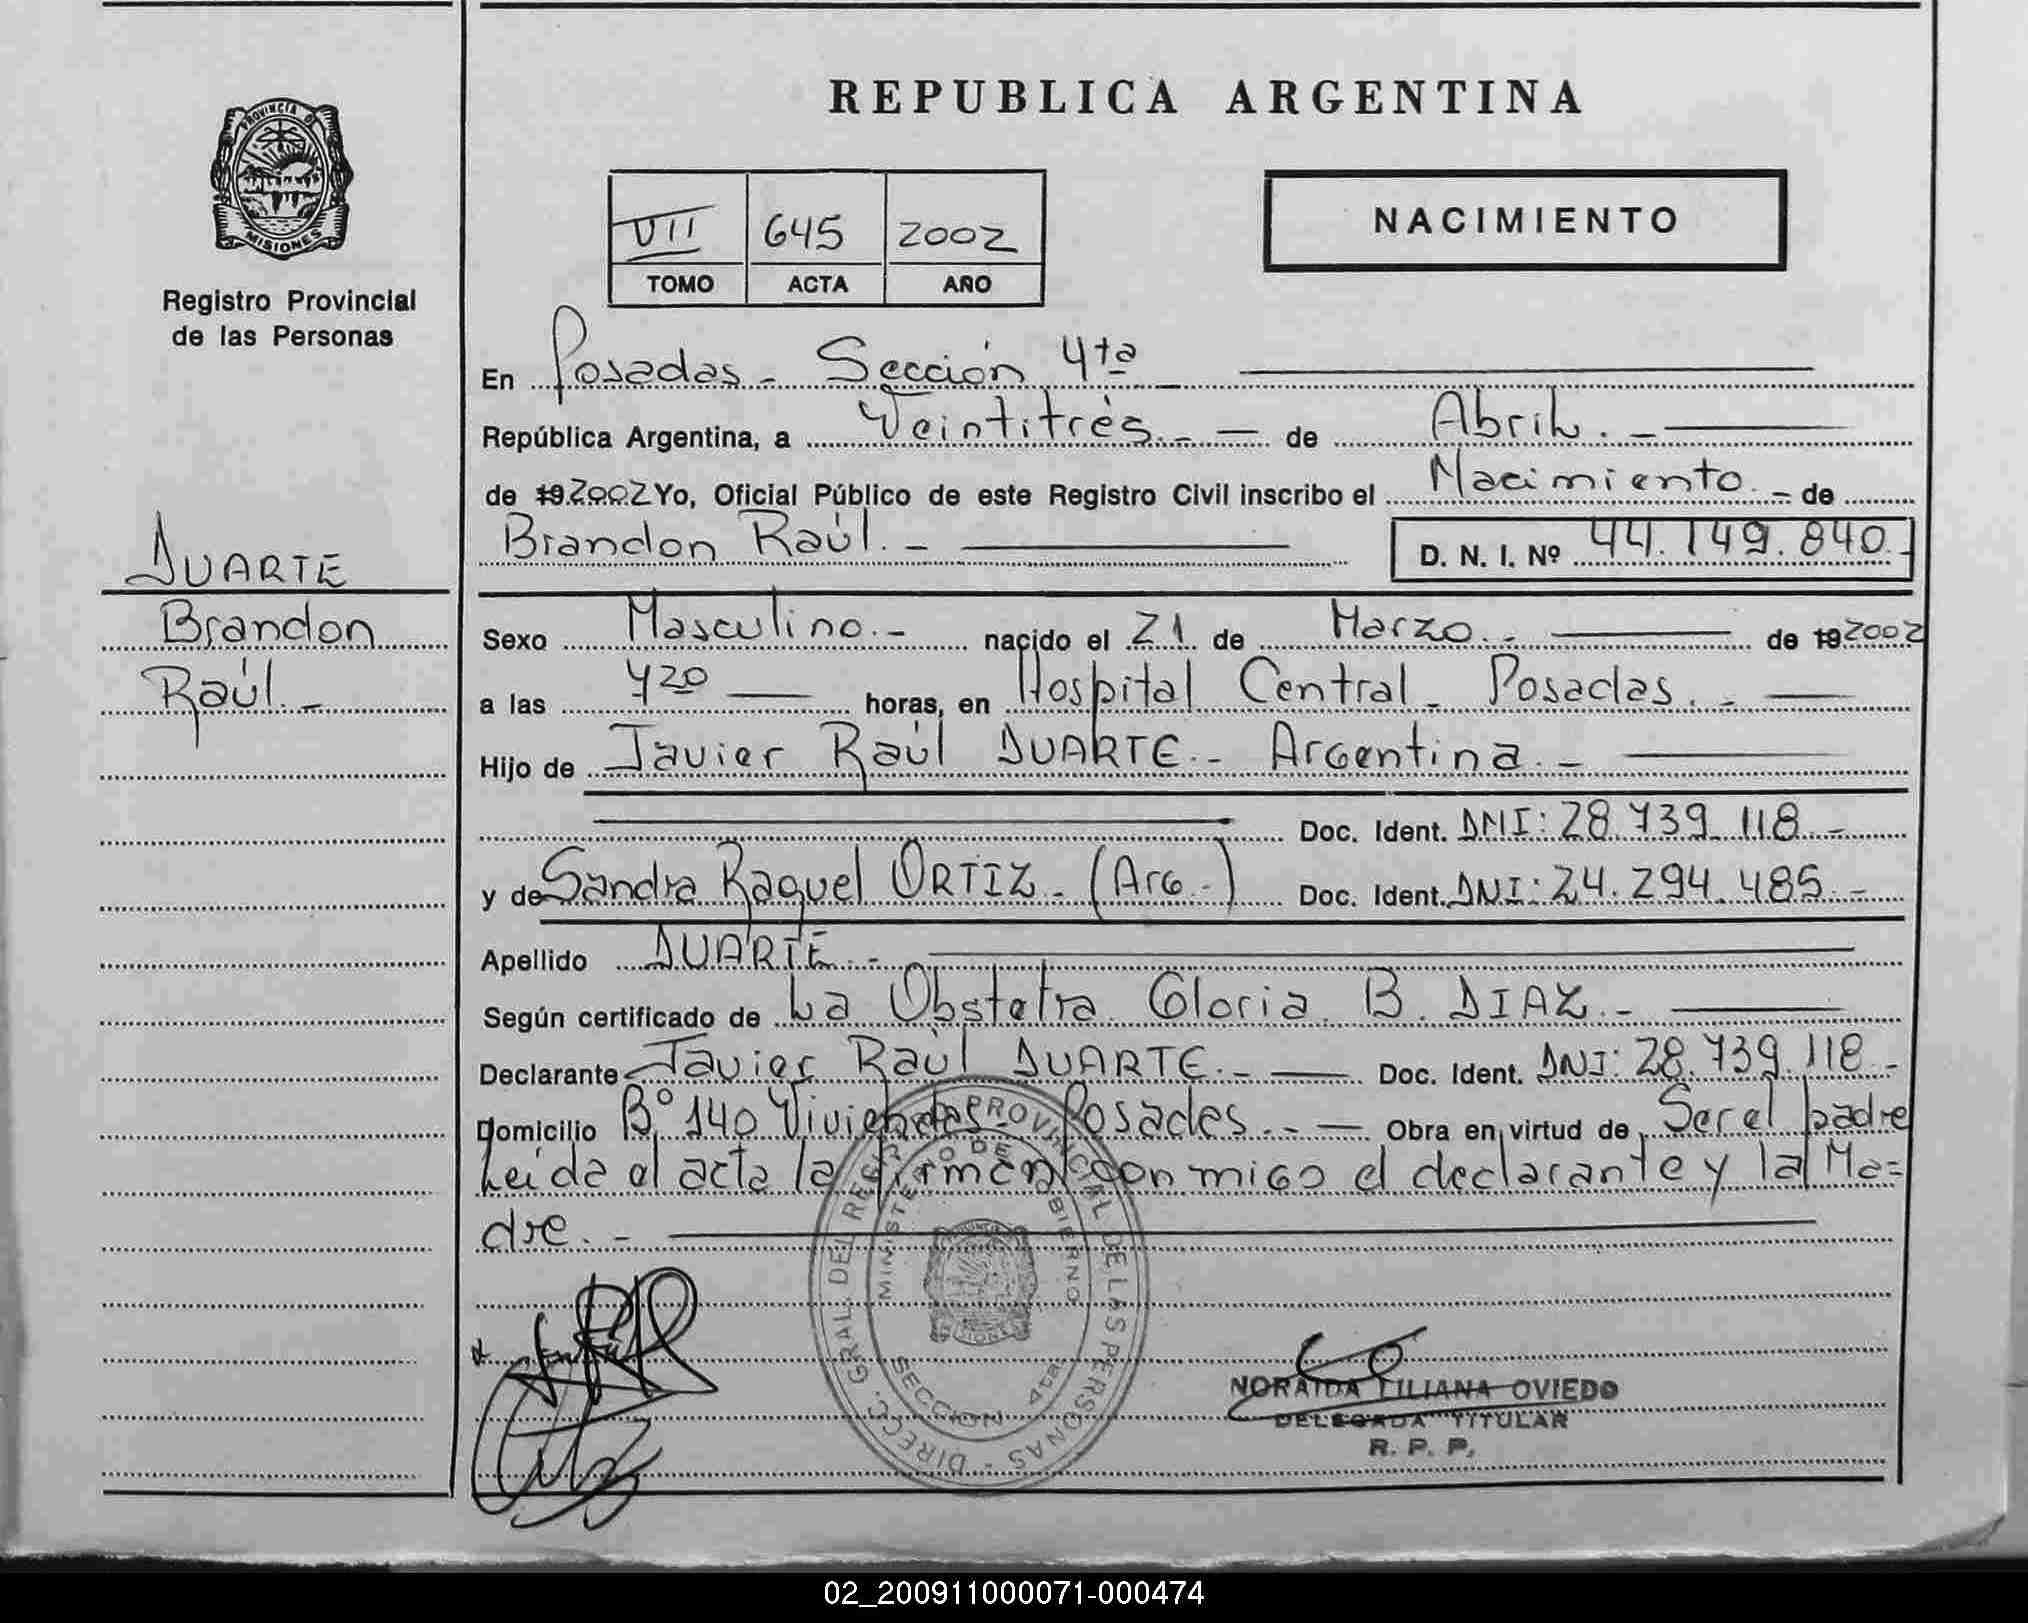 REPUBLICA ARGENTINA
PROVINCIA DE
MISIONES
Registro Provincial
de las Personas
VII 645 2002
TOMO ACTA AÑO
NACIMIENTO
DUARTE
Brandon
Raúl.-
En Posadas - Sección 4ta
República Argentina, a Veintitrés.- — de Abril.-
de 19 2002 Yo, Oficial Público de este Registro Civil inscribo el Nacimiento.- de
Brandon Raúl.- D. N. I. Nº 44.149.840.-
Sexo Masculino.- nacido el 21 de Marzo.- de 19 2002
a las 720 horas, en Hospital Central - Posadas.-
Hijo de Javier Raúl DUARTE.- Argentina.-
Doc. Ident. DNI: 28.739.118.-
y de Sandra Raquel ORTIZ - (Arg.-) Doc. Ident. DNI: 24.294.485.-
Apellido DUARTE.-
Según certificado de La Obstetra Gloria B. DIAZ.-
Declarante Javier Raúl DUARTE.- Doc. Ident. DNI: 28.739.118-
Domicilio Bº 140 Viviendas - Posadas.- Obra en virtud de Ser el padre
Leida el acta la firman con migo el declarante y la Ma=
dre.-
DIRECC. GRAL. DEL REGISTRO PROVINCIAL DE LAS PERSONAS -
MINISTERIO DE GOBIERNO
SECCION 4ta
NORAIDA LILIANA OVIEDO
DELEGADA TITULAR
R. P. P.
02_200911000071-000474